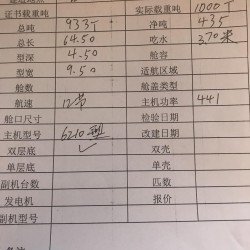 证书载重吨 实际载重吨 1000T
总吨 933T 净吨 435
总长 64.50 吃水 3.70米
型深 4.50 舱容
型宽 9.50 适航区域
舱数 舱盖类型
航速 12节 主机功率 441
舱口尺寸 检验日期
主机型号 6210型 改建日期
双层底 ✓ 双壳
单层底 单壳
副机台数 匹数
发电机 报价
副机型号